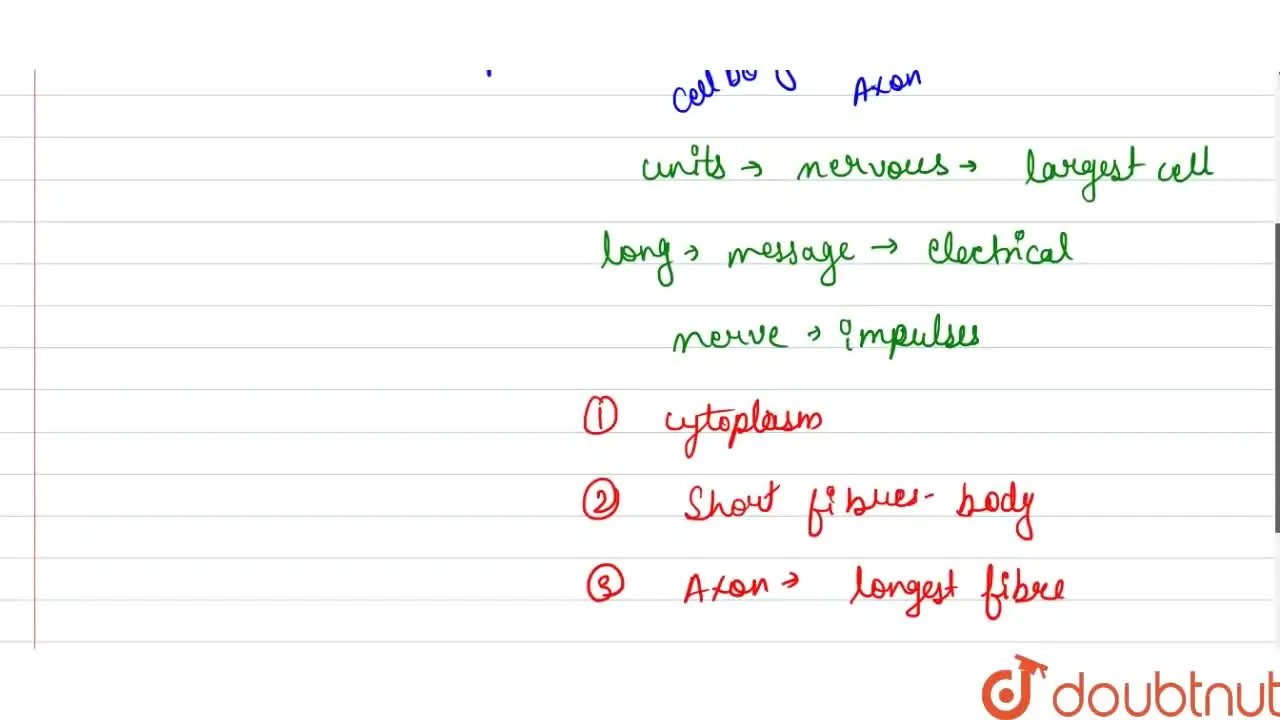 cell body Axon
units → nervous → largest cell
long → message → electrical
nerve → impulses
① cytoplasm
② Short fibres - body
③ Axon → longest fibre
doubtnut